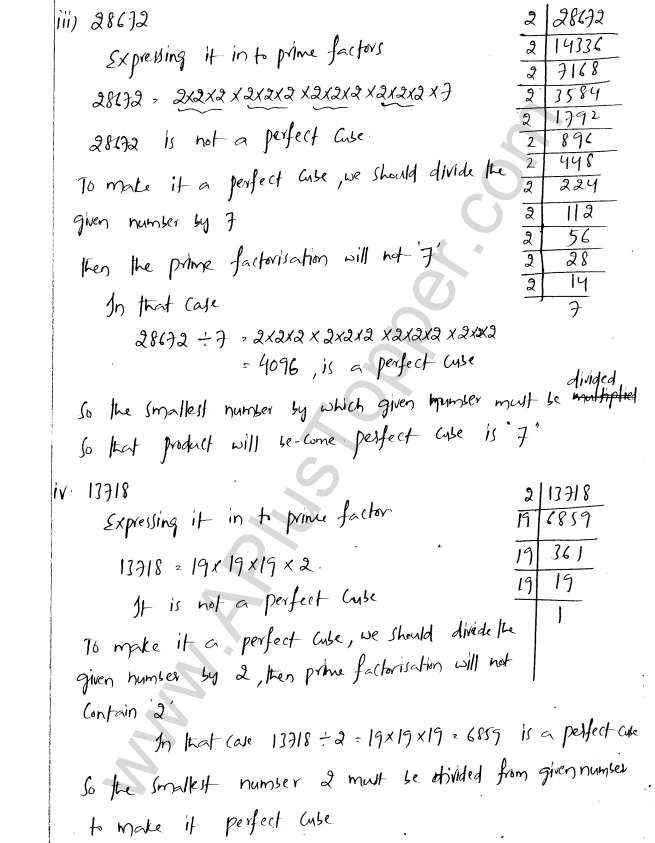 iii) 28672
Expressing it in to prime factors
28672 = 2×2×2 × 2×2×2 × 2×2×2 × 2×2×2 × 7
28672 is not a perfect Cube.
To make it a perfect Cube, we should divide the
given number by 7
then the prime factorisation will not '7'
In that Case
28672 ÷ 7 = 2×2×2 × 2×2×2 × 2×2×2 × 2×2×2
= 4096, is a perfect Cube
divided
So the smallest number by which given number must be multiplied
So that product will be-come perfect Cube is '7'
2 | 28672
2 | 14336
2 | 7168
2 | 3584
2 | 1792
2 | 896
2 | 448
2 | 224
2 | 112
2 | 56
2 | 28
2 | 14
7
iv. 13718
Expressing it in to prime factor
13718 = 19 × 19 × 19 × 2.
It is not a perfect Cube
To make it a perfect Cube, we should divide the
given number by 2, then prime factorisation will not
Contain '2'
In that Case 13718 ÷ 2 = 19×19×19 = 6859 is a perfect Cube
So the smallest number 2 must be divided from given number
to make it perfect Cube
2 | 13718
19 | 6859
19 | 361
19 | 19
1
www.APlusTopper.com